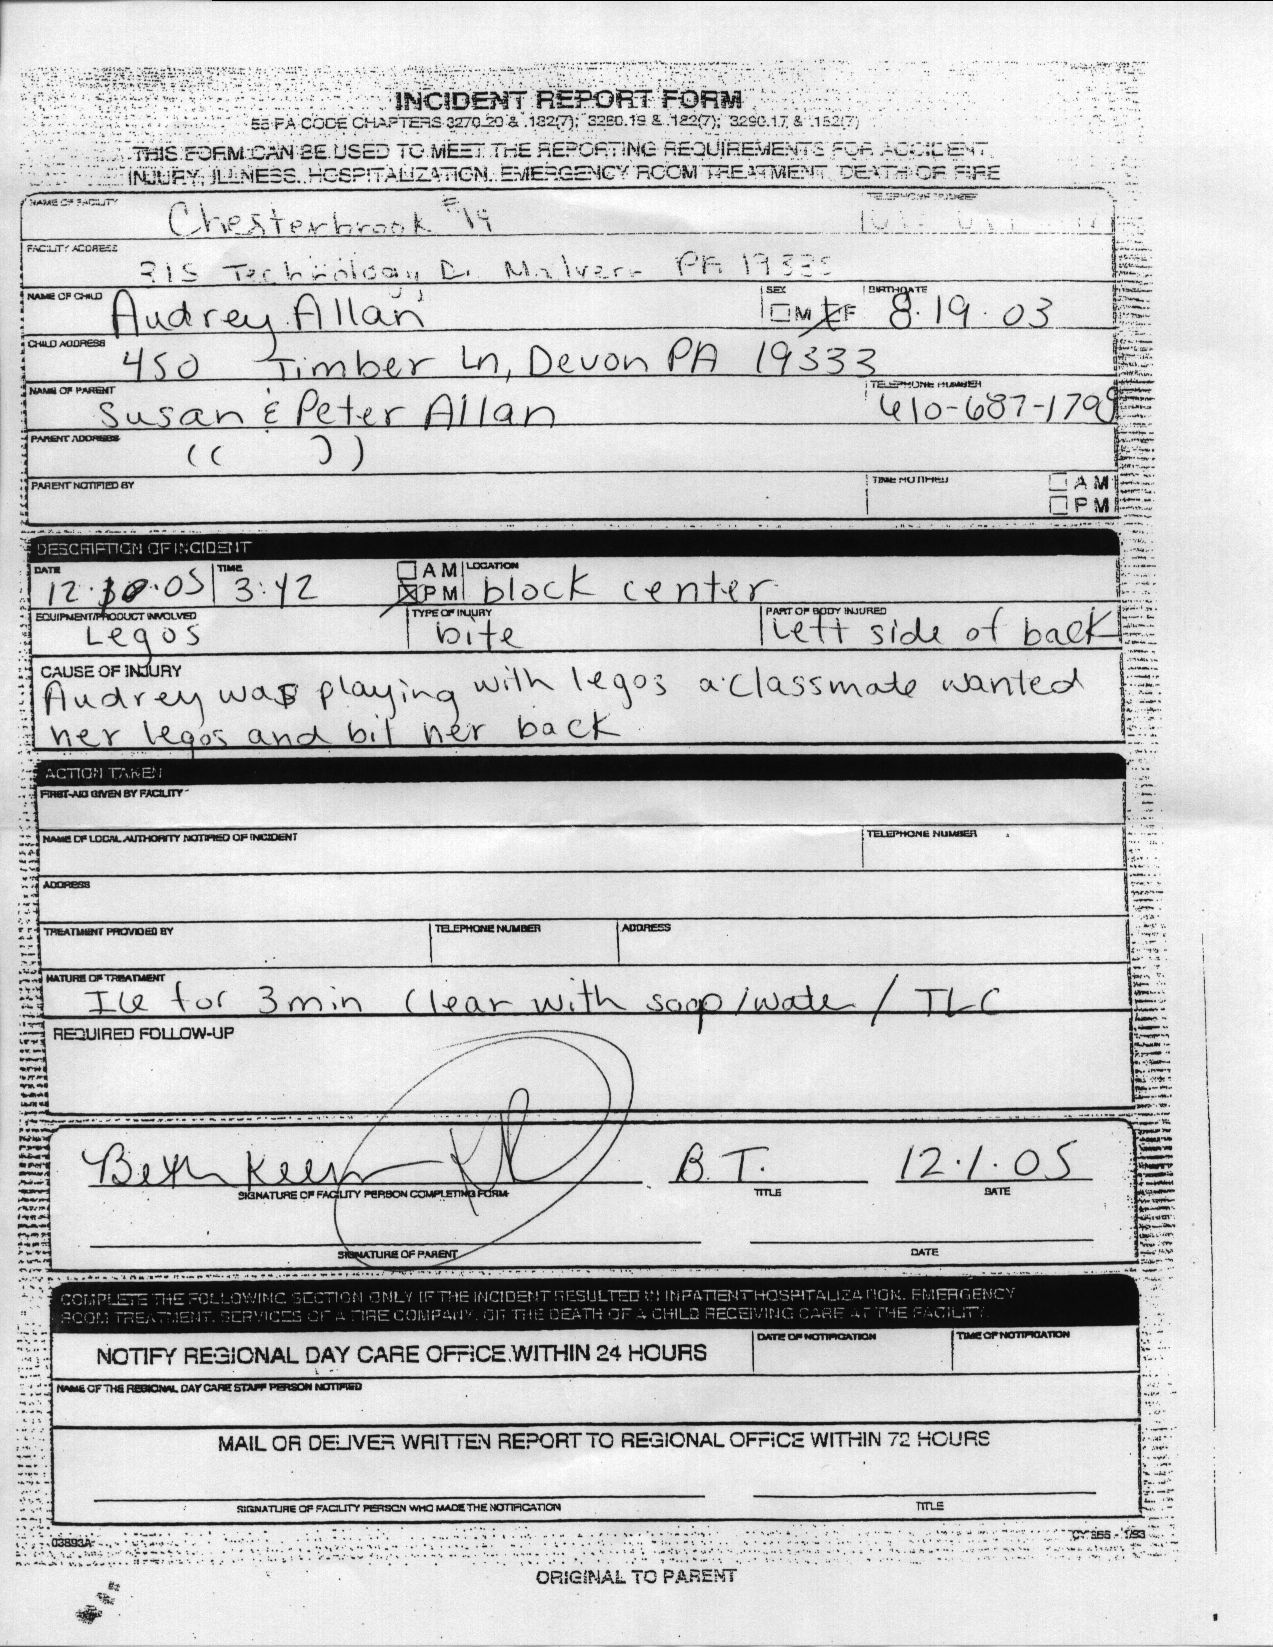 INCIDENT REPORT FORM
55 PA CODE CHAPTERS 3270.20 & .182(7); 3280.19 & .182(7); 3290.17 & .182(7)
THIS FORM CAN BE USED TO MEET THE REPORTING REQUIREMENTS FOR ACCIDENT,
INJURY, ILLNESS, HOSPITALIZATION, EMERGENCY ROOM TREATMENT, DEATH OR FIRE
NAME OF FACILITY Chesterbrook #19 TELEPHONE NUMBER
FACILITY ADDRESS Technology Dr Malvern PA
NAME OF CHILD Audrey Allan SEX M F BIRTHDATE 8.19.03
CHILD ADDRESS 450 Timber Ln, Devon PA 19333
NAME OF PARENT Susan & Peter Allan TELEPHONE NUMBER 610-687-1798
PARENT ADDRESS (( ))
PARENT NOTIFIED BY TIME NOTIFIED AM
PM
DESCRIPTION OF INCIDENT
DATE 12 05 TIME 3:42 AM PM LOCATION block center
EQUIPMENT/PRODUCT INVOLVED Legos TYPE OF INJURY bite PART OF BODY INJURED Left side of back
CAUSE OF INJURY
Audrey was playing with legos a classmate wanted
her legos and bit her back
ACTION TAKEN
FIRST-AID GIVEN BY FACILITY
NAME OF LOCAL AUTHORITY NOTIFIED OF INCIDENT TELEPHONE NUMBER
ADDRESS
TREATMENT PROVIDED BY TELEPHONE NUMBER ADDRESS
NATURE OF TREATMENT
Ice for 3 min Clear with soap/water / TLC
REQUIRED FOLLOW-UP
Beth B.T. 12.1.05
SIGNATURE OF FACILITY PERSON COMPLETING FORM TITLE DATE
SIGNATURE OF PARENT DATE
COMPLETE THE FOLLOWING SECTION ONLY IF THE INCIDENT RESULTED IN INPATIENT HOSPITALIZATION, EMERGENCY
ROOM TREATMENT, SERVICES OF A FIRE COMPANY, OR THE DEATH OF A CHILD RECEIVING CARE AT THE FACILITY.
NOTIFY REGIONAL DAY CARE OFFICE WITHIN 24 HOURS DATE OF NOTIFICATION TIME OF NOTIFICATION
NAME OF THE REGIONAL DAY CARE STAFF PERSON NOTIFIED
MAIL OR DELIVER WRITTEN REPORT TO REGIONAL OFFICE WITHIN 72 HOURS
SIGNATURE OF FACILITY PERSON WHO MADE THE NOTIFICATION TITLE
03893A CY 866 - 1/93
ORIGINAL TO PARENT